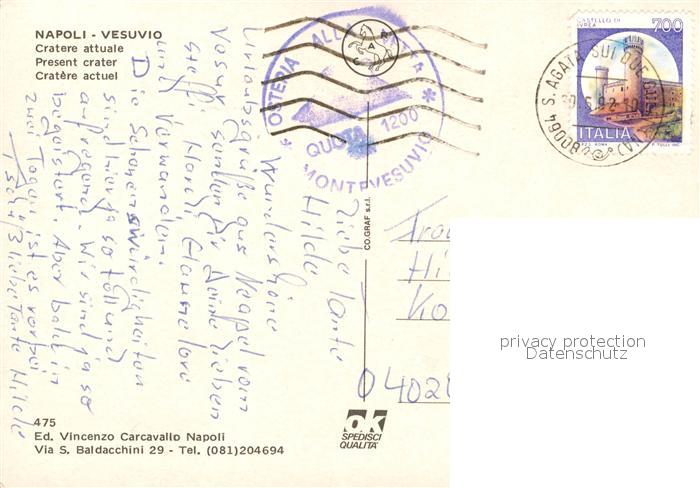 NAPOLI - VESUVIO
Cratere attuale
Present crater
Cratère actuel
OSTERIA ALL
QUOTA 1200
* MONTEVESUVIO *
R A C
CASTELLO DI IVREA
700
ITALIA
80064 S. AGATA SUI DUE
30.6.92
Liebe Tante
Hilde
Wunderschöne
Urlaubsgrüße aus Neapel vom
Vesuv senden Dir Deine lieben
Steffi Hansi Hannelore
und Verwandten.
Die Sehenswürdigkeiten
sind hier ja so toll und
aufregend. Wir sind ja so
begeistert. Aber bald in
zwei Tagen ist es vorbei
Tschüß liebe Tante Hilde
CO.GRAF s.r.l.
Hi
Ko
privacy protection
Datenschutz
475
Ed. Vincenzo Carcavallo Napoli
Via S. Baldacchini 29 - Tel. (081)204694
ok
SPEDISCI
QUALITA'